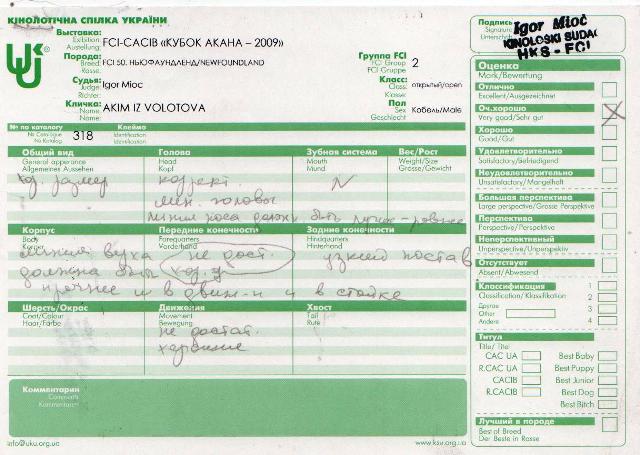 КІНОЛОГІЧНА СПІЛКА УКРАЇНИ
Выставка: FCI-CACIB «КУБОК АКАНА – 2009»
Exibition:
Austellung:
Порода: FCI 50. НЬЮФАУНДЛЕНД/NEWFOUNDLAND
Breed
Rasse:
Группа FCI 2
FCI Group
FCI Gruppe
Судья: Igor Mioc
Judge:
Richter:
Класс: открытый/open
Class:
Klasse:
Кличка: AKIM IZ VOLOTOVA
Name:
Name:
Пол Кобель/Male
Sex
Geschlecht
Подпись
Signature
Unterschrift
Igor Mioč
KINOLOŠKI SUDAC
HKS - FCI
№ по каталогу 318
№ Catalogue
№ Katalog
Клеймо
Identification
Identification
Общий вид
General apperance
Allgemeines Aussehen
Голова
Head
Kopf
Зубная система
Mouth
Mund
Вес/Рост
Weight/Size
Grosse/Gewicht
хор. размер
коррект.
N
лин. головы
линия носа должн. быть лучше - ровнее
Корпус
Body
Korper
Передние конечности
Forequarters
Vorderhand
Задние конечности
Hindquarters
Hinterhand
линия верха
не дост.
узкий постав
должна быть
прочнее и в движ-и и в стойке
Шерсть/Окрас
Coat/Colour
Haar/Farbe
Движения
Movement
Bewegung
Хвост
Tail
Rute
не достат.
хорошие
Комментарии
Comments
Kommentaren
info@uku.org.ua
www.ksu.org.ua
Оценка
Mark/Bewertung
Отлично
Excellent/Ausgezeichnet
Оч.хорошо
Very good/Sehr gut
Хорошо
Good/Gut
Удовлетворительно
Satisfactory/Befriedigend
Неудовлетворительно
Unsatisfactory/Mangelhaft
Большая перспектива
Large perspective/Grosse Perspektive
Перспектива
Perspective/Perspektiv
Неперспективный
Unperspective/Unperspektiv
Отсутствует
Absent/Abwesend
Классификация 1
Classification/Klassifikation 2
Другое 3
Other
Andere 4
Титул
Title/Titel
CAC UA Best Baby
R.CAC UA Best Puppy
CACIB Best Junior
R.CACIB Best Dog
Best Bitch
Лучший в породе
Best of Breed
Der Beste in Rasse